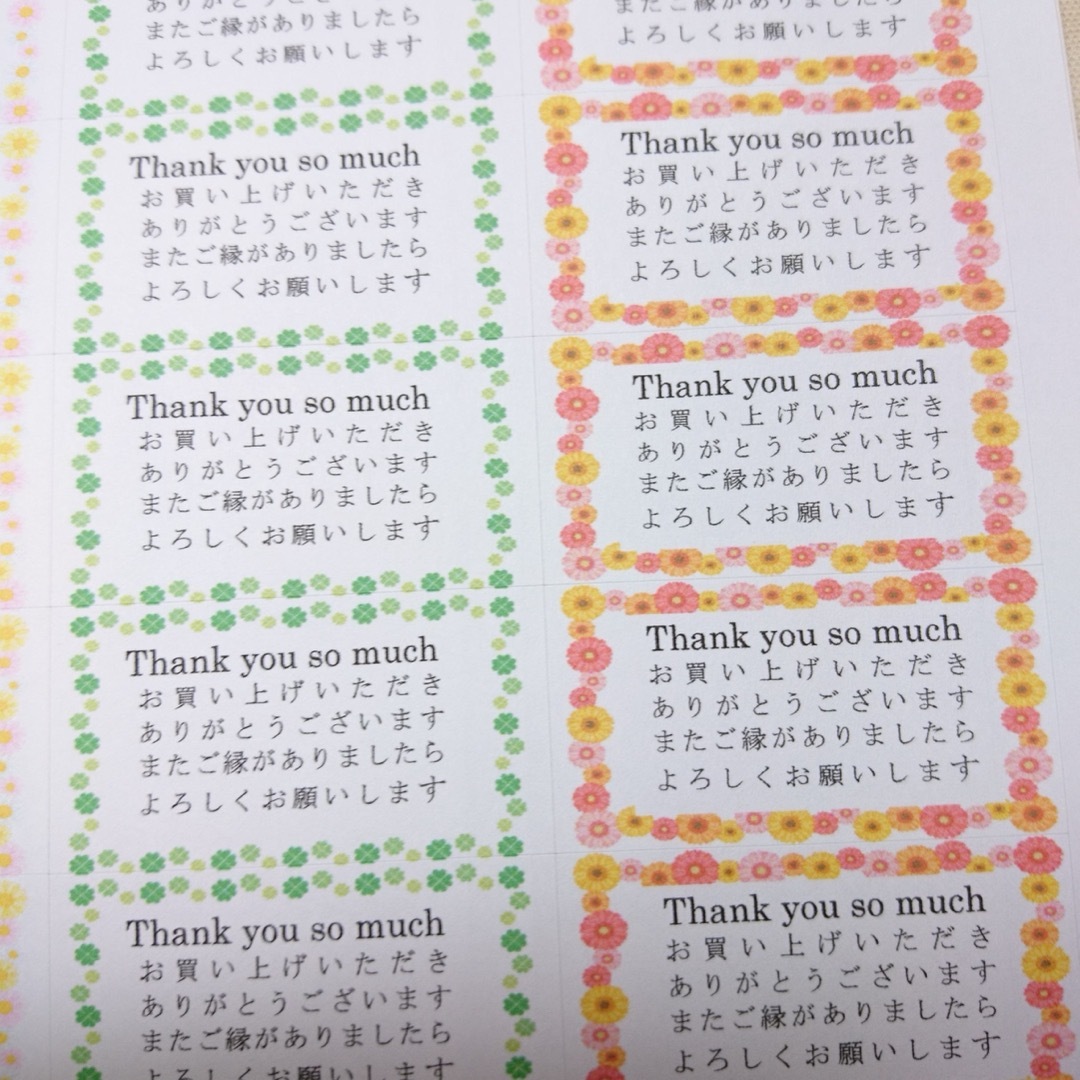 ありがとうござ
またご縁がありましたら
よろしくお願いします
Thank you so much
お買い上げいただき
ありがとうございます
またご縁がありましたら
よろしくお願いします
Thank you so much
お買い上げいただき
ありがとうございます
またご縁がありましたら
よろしくお願いします
Thank you so much
お買い上げいただき
ありがとうございます
またご縁がありましたら
よろしくお願いします
Thank you so much
お買い上げいただき
ありがとうございます
またご縁がありましたら
よろしくお願いします
またご縁がありましたら
よろしくお願いします
Thank you so much
お買い上げいただき
ありがとうございます
またご縁がありましたら
よろしくお願いします
Thank you so much
お買い上げいただき
ありがとうございます
またご縁がありましたら
よろしくお願いします
Thank you so much
お買い上げいただき
ありがとうございます
またご縁がありましたら
よろしくお願いします
Thank you so much
お買い上げいただき
ありがとうございます
またご縁がありましたら
よろしくお願いします